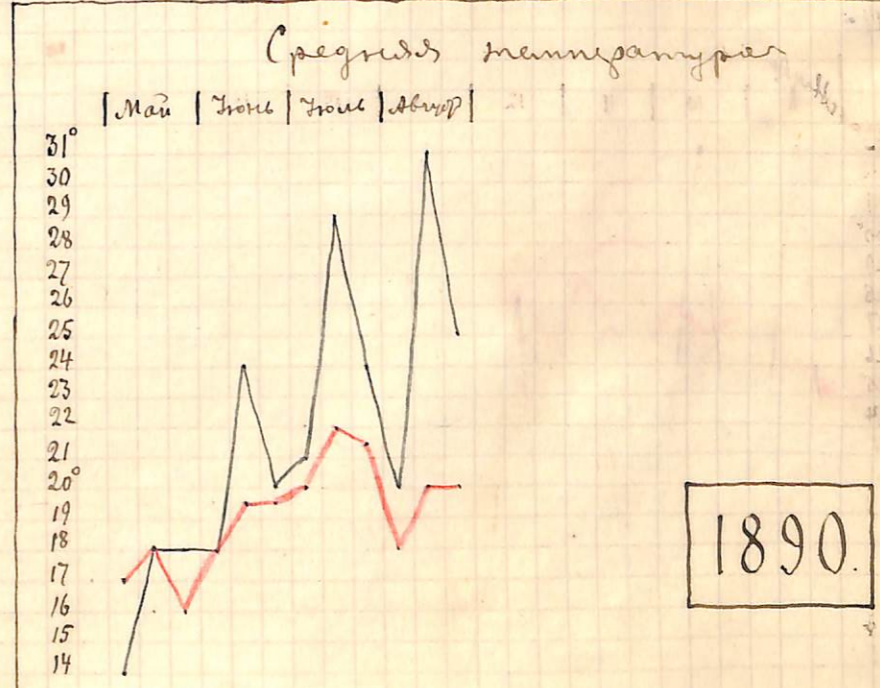 Средняя температура
Май Июнь Июль Август
31°
30
29
28
27
26
25
24
23
22
21
20°
19
18
17
16
15
14
1890.